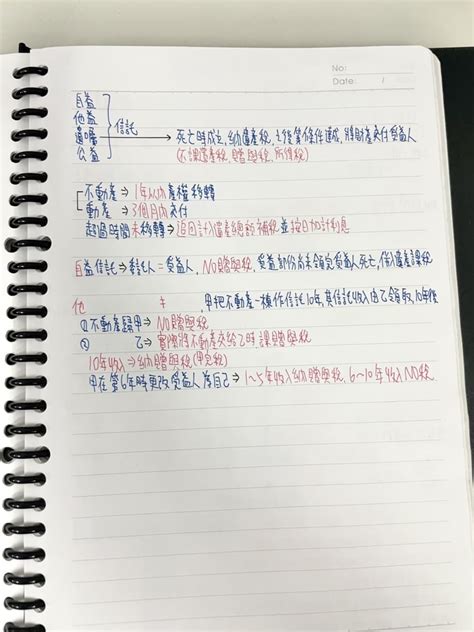 No:
Date: /
自益
他益
遺囑 信託 → 死亡時成立, 納遺產稅, 之後等條件達成, 將財產交付受益人
公益 (不課遺產稅, 贈與稅, 所得稅)
不動產 ⇒ 1年以內產權移轉
動產 ⇒ 3個月內交付
超過時間未移轉 ⇒ 追回計入遺產總額補稅並按日加計利息
自益信託 ⇒ 委託人=受益人, NO贈與稅, 受益部份尚未領完受益人死亡, 併遺產課稅
他 ≠ , 甲把不動產一棟作信託10年, 其信託收入由乙領取, 10年後
① 不動產歸甲 ⇒ NO贈與稅
② 乙 ⇒ 實際將不動產交給乙時, 課贈與稅
10年收入 ⇒ 納贈與稅(甲完稅)
甲在第6年時更改受益人為自己 ⇒ 1~5年收入納贈與稅, 6~10年收入NO稅.